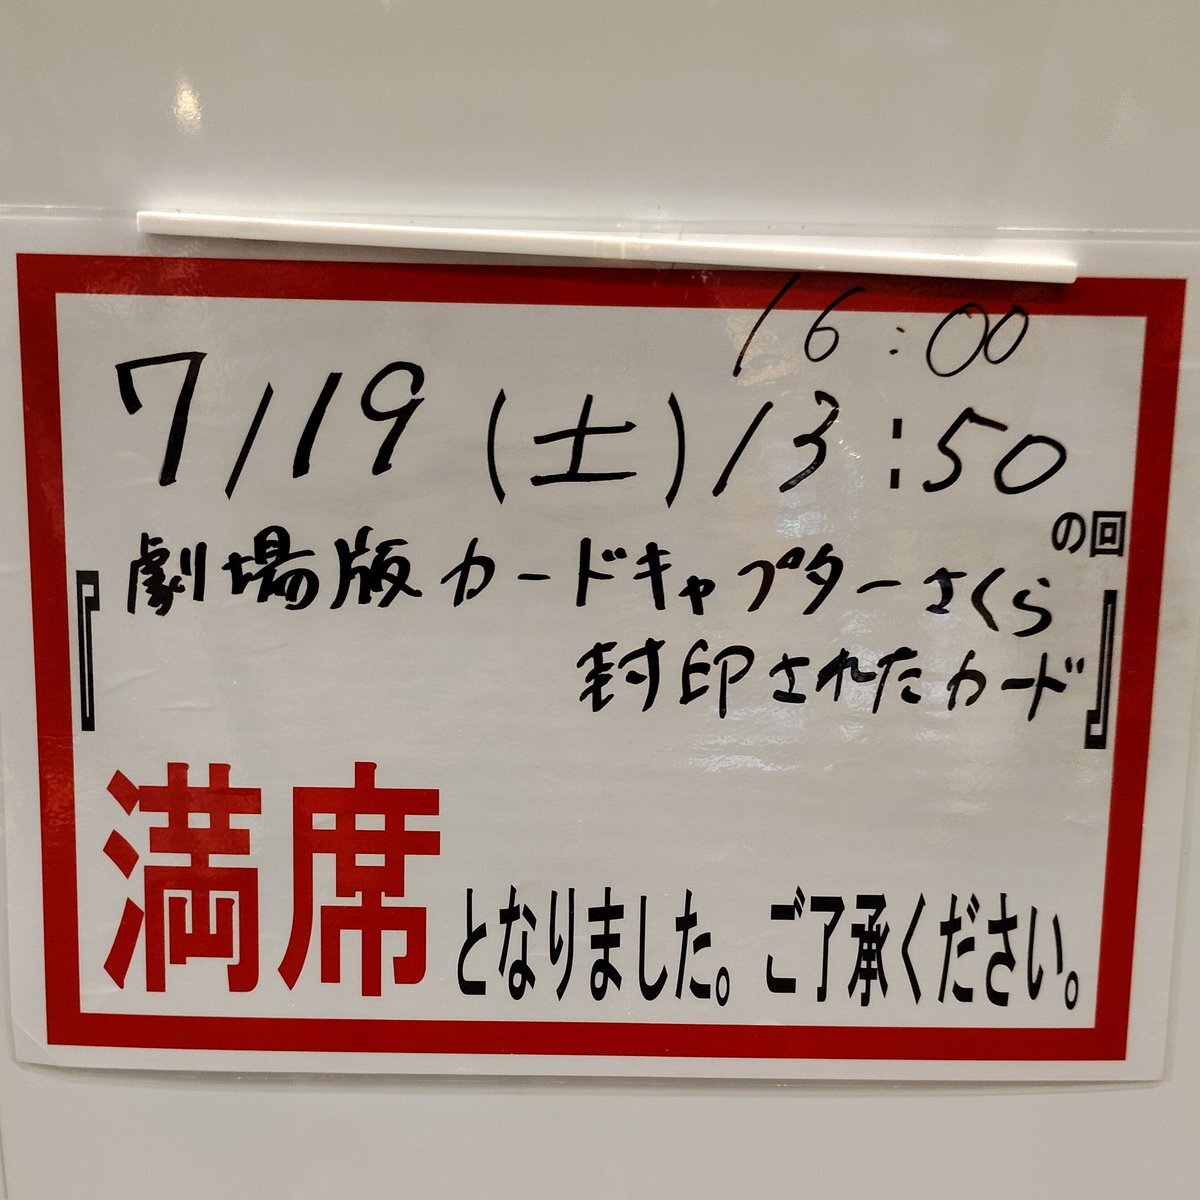 16:00
7/19(土)13:50
の回
『劇場版カードキャプターさくら
封印されたカード』
満席となりました。ご了承ください。